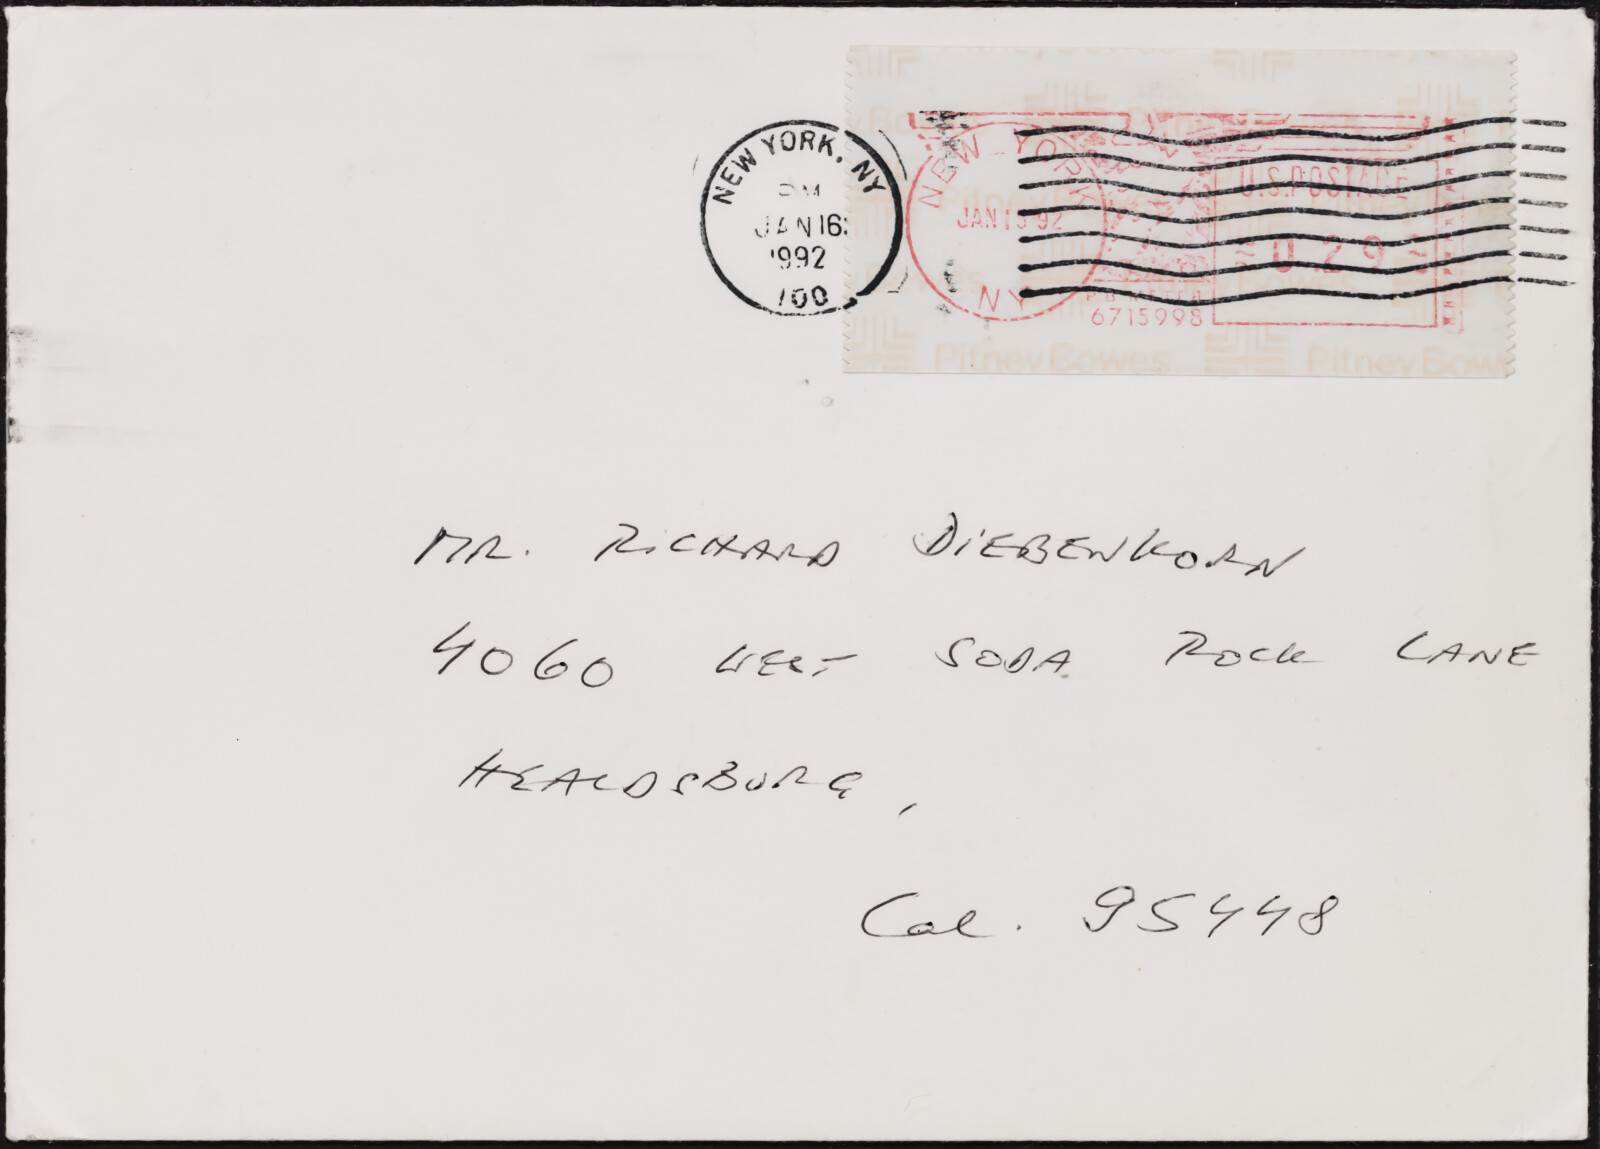 NEW YORK, NY
PM
JAN 16
1992
100
NEW YORK
JAN 16 92
NY
U.S. POSTAGE
0.29
P B METER
6715998
Pitney Bowes Pitney Bowes
MR. RICHARD DIEBENKORN
4060 WEST SODA ROCK LANE
HEALDSBURG,
Cal. 95448